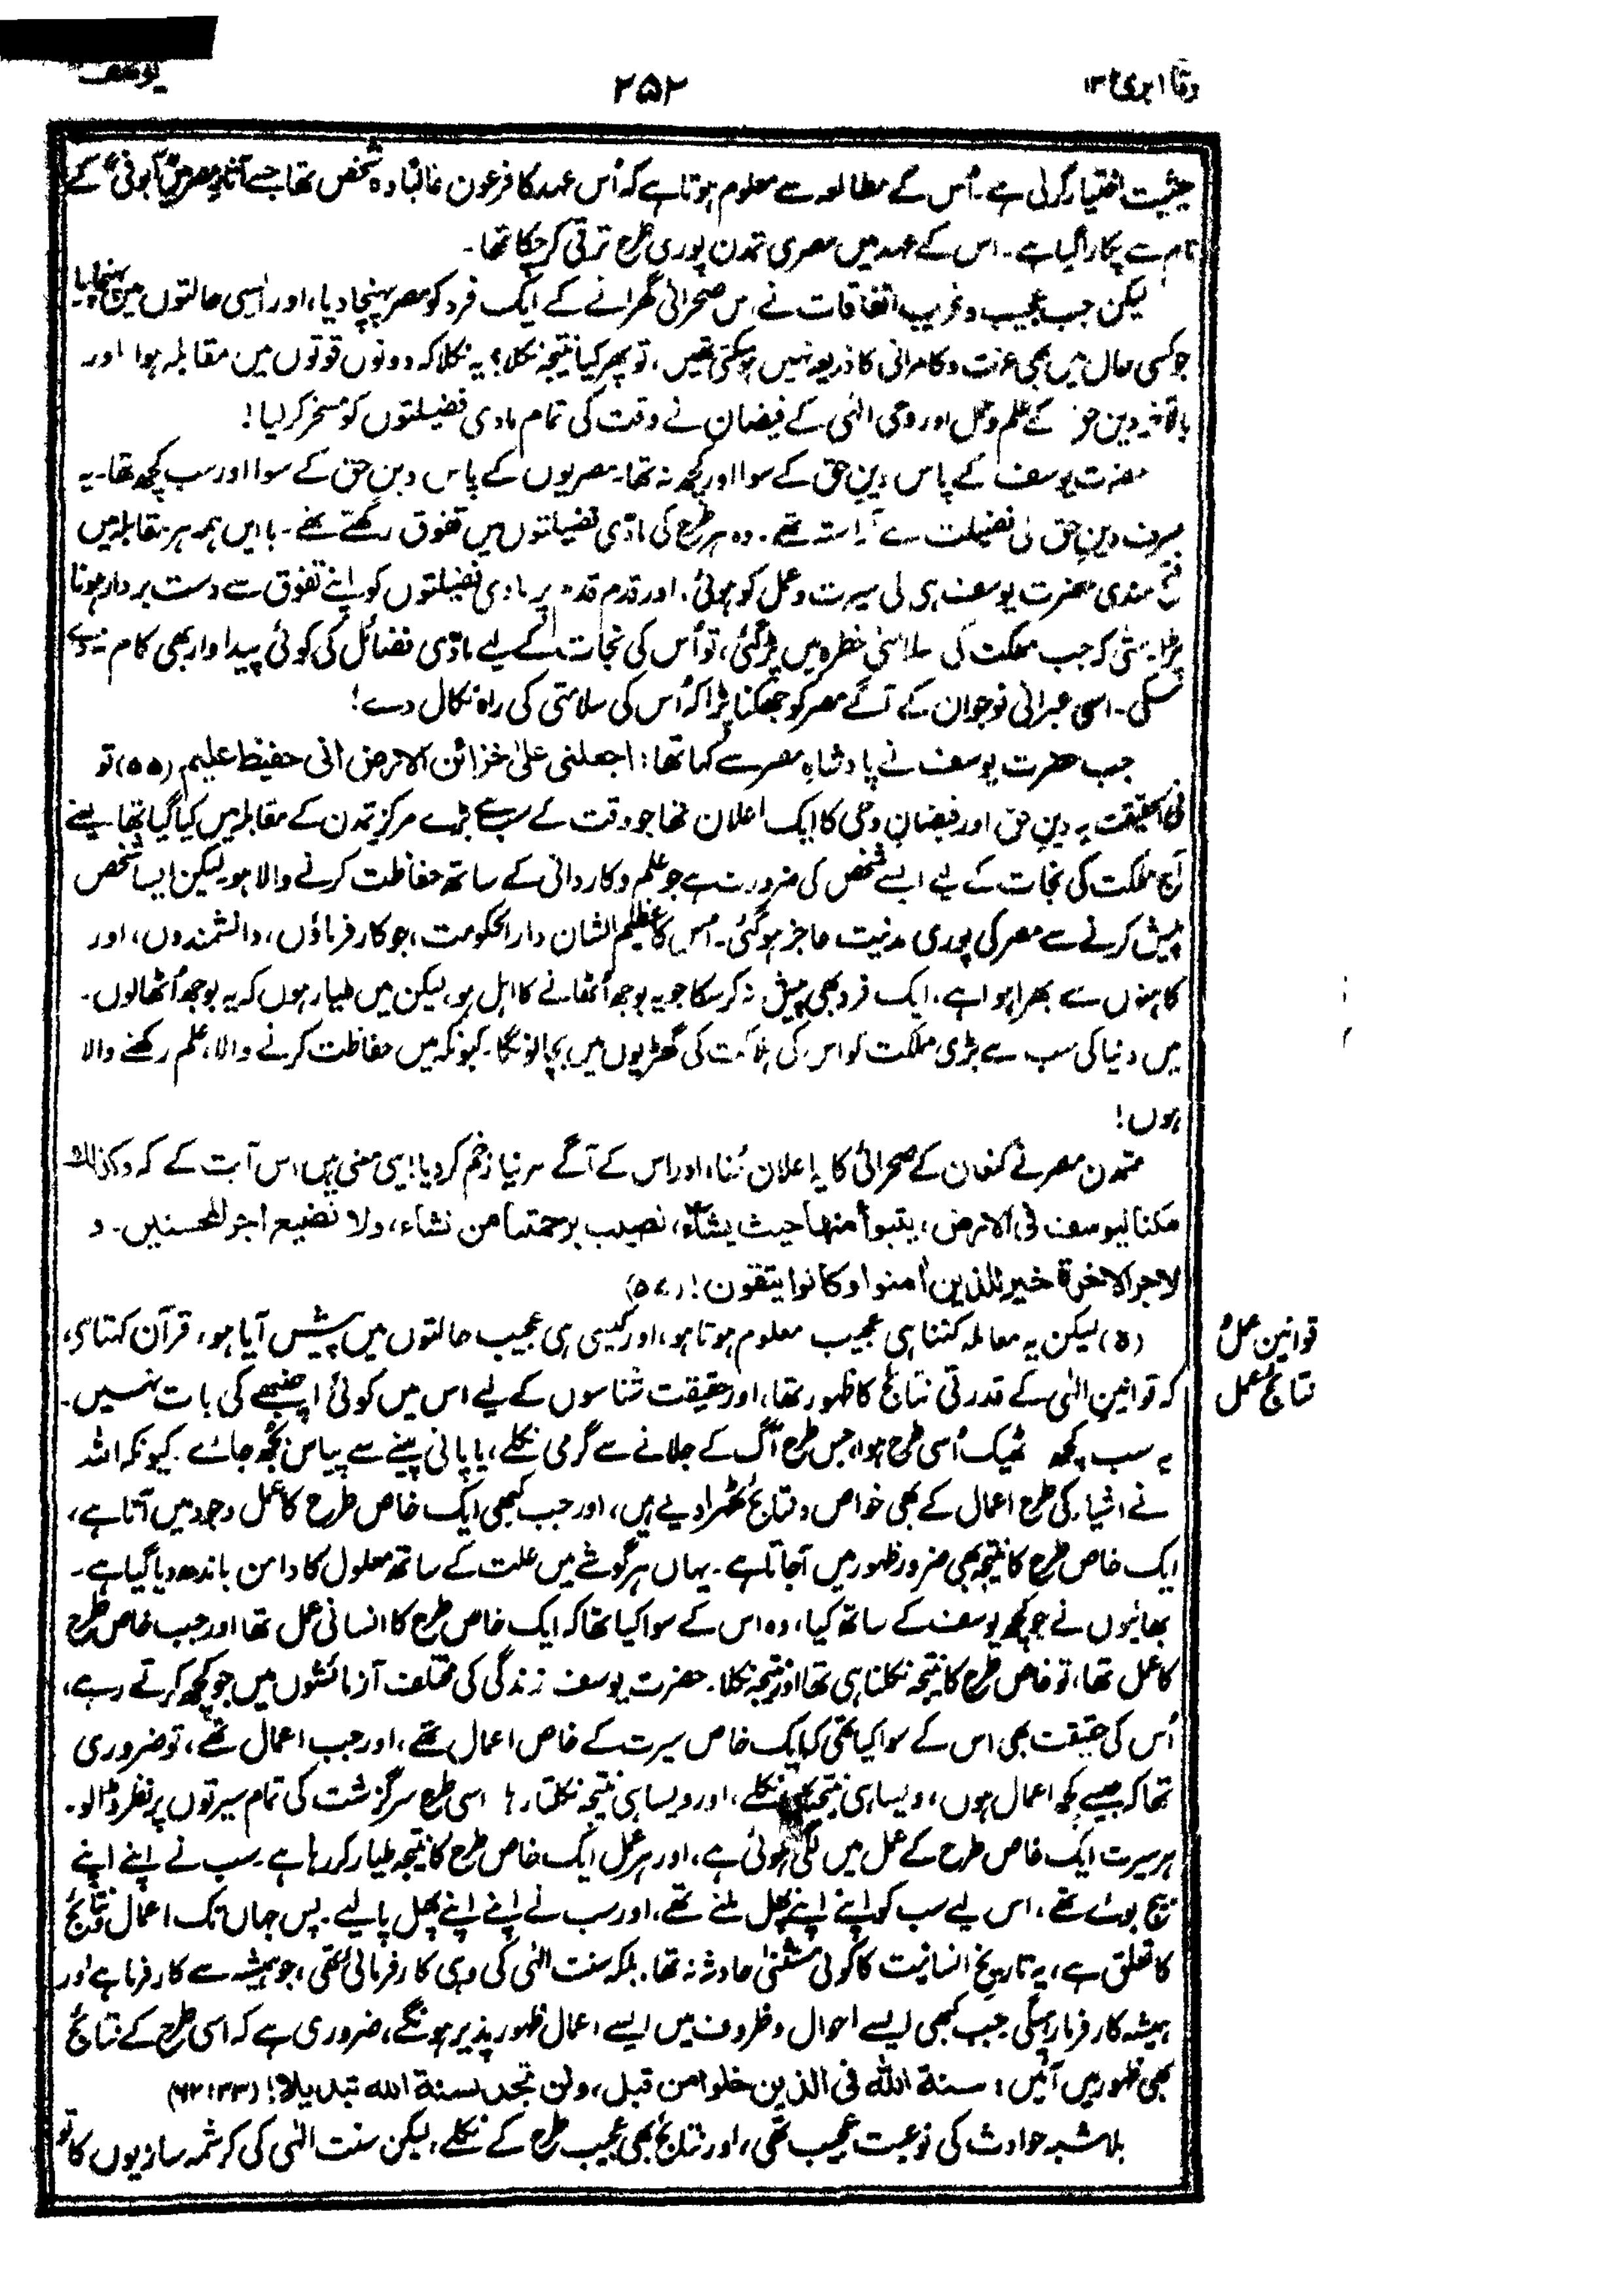 وما ابری ۱۳
۲۵۲
یوسف
حیثیت اختیار کرلی ہے۔ اُس کے مطالعہ سے معلوم ہوتا ہے کہ اُس عہد کا فرعون غالباً وہ شخص تھا جسے آثارِ مصر میں کے
نام سے پکارا گیا ہے۔ اس کے عہد میں مصری تمدن پوری طرح ترقی کرچکا تھا۔
لیکن جب عجیب و غریب اتفاقات نے اس صحرائی گھرانے کے ایک فرد کو مصر پہنچا دیا، اور ایسی حالتوں میں پہنچایا
جو کسی حال میں بھی عزت و کامرانی کا ذریعہ نہیں ہوسکتی تھیں، تو پھر کیا نتیجہ نکلا؟ یہ نکلا کہ دونوں قوتوں میں مقابلہ ہوا اور
بالآخر دین حق کے علم و عمل اور وحی الٰہی کے فیضان نے وقت کی تمام مادی فضیلتوں کو مسخر کر لیا!
حضرت یوسف کے پاس دینِ حق کے سوا اور کچھ نہ تھا۔ مصریوں کے پاس دین حق کے سوا اور سب کچھ تھا۔ یہ
صرف دینِ حق کی فضیلت سے آراستہ تھے۔ وہ ہر طرح کی مادّی فضیلتوں میں تفوق رکھتے تھے۔ باایں ہمہ ہر مقابلہ میں
فتح مندی حضرت یوسف ہی کی سیرت و عمل کو ہوئی، اور قدم قدم پر مادی فضیلتوں کو اپنے تفوق سے دست بردار ہونا
پڑا۔ حتیٰ کہ جب مملکت کی سلامتی خطرہ میں پڑ گئی، تو اُس کی نجات کے لیے مادّی فضائل کی کوئی پیداوار بھی کام نہ دے
سکی۔ اسی عبرانی نوجوان کے آگے مصر کو جھکنا پڑا کہ اُس کی سلامتی کی راہ نکال دے!
جب حضرت یوسف نے پادشاہِ مصر سے کہا تھا: اجعلنی علیٰ خزائن الارض انی حفیظ علیم (۵۵) تو
فی الحقیقت یہ دینِ حق اور فیضانِ وحی کا ایک اعلان تھا جو وقت کے سب سے بڑے مرکزِ تمدن کے مقابلہ میں کیا گیا تھا۔ یعنے
آج مملکت کی نجات کے لیے ایسے شخص کی ضرورت ہے جو علم و کاردانی کے ساتھ حفاظت کرنے والا ہو۔ لیکن ایسا شخص
پیش کرنے سے مصر کی پوری مدنیت عاجز ہوگئی۔ اس کا عظیم الشان دارالحکومت، جو کارفرماؤں، دانشمندوں، اور
کاہنوں سے بھرا ہوا ہے، ایک فرد بھی پیش نہ کرسکا جو یہ بوجھ اُٹھانے کا اہل ہو، لیکن میں طیار ہوں کہ یہ بوجھ اُٹھالوں۔
میں دنیا کی سب سے بڑی مملکت کو اس کی ہلاکت کی گھڑیوں میں بچا لونگا۔ کیونکہ میں حفاظت کرنے والا، علم رکھنے والا
ہوں!
متمدن مصر نے کنعان کے صحرائی کا یہ اعلان سُنا، اور اس کے آگے سر نیاز خم کر دیا! یہی معنی ہیں اس آیت کے کہ وکذٰلک
مکنا لیوسف فی الارض، یتبوأ منھا حیث یشآء، نصیب برحمتنا من نشاء، ولا نضیع اجر المحسنین۔ و
لاجر الاخرة خیر للذین اٰمنوا وکانوا یتقون! (۵۷)
قوانین عمل و نتائج عمل
(۵) لیکن یہ معاملہ کتنا ہی عجیب معلوم ہوتا ہو، اور کیسی ہی عجیب حالتوں میں پیش آیا ہو، قرآن کہتا ہی،
کہ قوانینِ الٰہی کے قدرتی نتائج کا ظہور تھا، اور حقیقت شناسوں کے لیے اس میں کوئی اچنبھے کی بات نہیں۔
یہ سب کچھ ٹھیک اُسی طرح ہوا، جس طرح آگ کے جلانے سے گرمی نکلے، یا پانی پینے سے پیاس بُجھ جائے۔ کیونکہ اللہ
نے اشیاء کی طرح اعمال کے بھی خواص و نتائج ٹھہرا دیے ہیں، اور جب کبھی ایک خاص طرح کا عمل وجود میں آتا ہے،
ایک خاص طرح کا نتیجہ بھی ضرور ظہور میں آجاتا ہے۔ یہاں ہر گوشے میں علت کے ساتھ معلول کا دامن باندھ دیا گیا ہے۔
بھائیوں نے جو کچھ یوسف کے ساتھ کیا، وہ اس کے سوا کیا تھا کہ ایک خاص طرح کا انسانی عمل تھا اور جب خاص طرح
کا عمل تھا، تو خاص طرح کا نتیجہ نکلنا ہی تھا اور نتیجہ نکلا۔ حضرت یوسف زندگی کی مختلف آزمائشوں میں جو کچھ کرتے رہے،
اُس کی حقیقت بھی اس کے سوا کیا تھی کہ ایک خاص سیرت کے خاص اعمال تھے، اور جب اعمال تھے، تو ضروری
تھا کہ جیسے کچھ اعمال ہوں، ویسا ہی نتیجہ بھی نکلے، اور ویسا ہی نتیجہ نکلتا رہا اسی طرح سرگزشت کی تمام سیرتوں پر نظر ڈالو۔
ہر سیرت ایک خاص طرح کے عمل میں لگی ہوئی ہے، اور ہر عمل ایک خاص طرح کا نتیجہ طیار کر رہا ہے۔ سب نے اپنے اپنے
بیج بوئے تھے، اس لیے سب کو اپنے اپنے پھل ملنے تھے، اور سب نے اپنے اپنے پھل پالیے۔ پس جہاں تک اعمال و نتائج
کا تعلق ہے، یہ تاریخِ انسانیت کا کوئی مستثنیٰ حادثہ نہ تھا۔ بلکہ سنت الٰہی کی وہی کارفرمائی تھی، جو ہمیشہ سے کارفرما ہے اور
ہمیشہ کارفرما رہیگی جب کبھی ایسے احوال و ظروف میں ایسے اعمال ظہور پذیر ہونگے، ضروری ہے کہ اسی طرح کے نتائج
بھی ظہور میں آئیں: سنة اللہ فی الذین خلوا من قبل، ولن تجد لسنة اللہ تبدیلا! (۳۳:۶۲)
بلا شبہ حوادث کی نوعیت عجیب تھی، اور نتائج بھی عجیب طرح کے نکلے، لیکن سنت الٰہی کی کرشمہ سازیوں کا تو